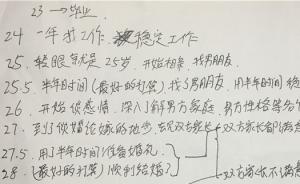 23 → 毕业
24 一年找工作 稳定工作
25. 转眼气就是25岁 开始相亲 找男朋友
25.5 半年时间(最好的打算)找了男朋友 用半年时间
26. 开始谈感情,深入了解男方家庭 男方性格等
27. 到了谈婚论嫁的地步 去见双方家长 双方家长都满意
27.5. 用了半年时间准备婚礼
28. (最好的打算)顺利结婚? 双方家长不满意